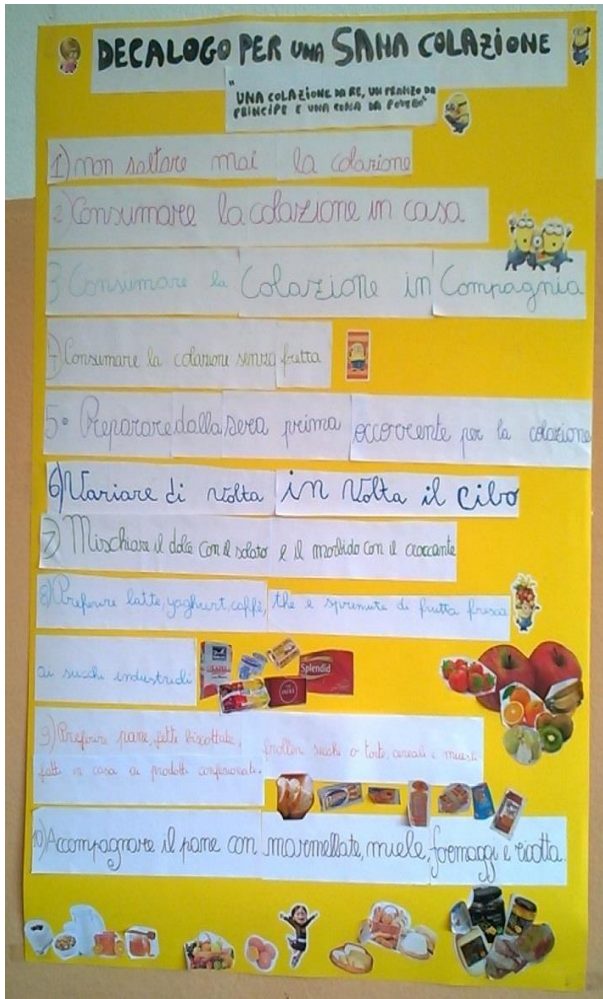 DECALOGO PER UNA SANA COLAZIONE
"UNA COLAZIONE DA RE, UN PRANZO DA
PRINCIPE E UNA CENA DA POVERO"
1) Non saltare mai la colazione
2) Consumare la colazione in casa
3 Consumare la Colazione in Compagnia
4) Consumare la colazione senza fretta
5° Preparare dalla sera prima occorrente per la colazione
6) Variare di volta in Volta il cibo
7) Mischiare il dolce con il salato e il morbido con il croccante
8) Preferire latte, yoghurt, caffè, the e spremute di frutta fresca
ai succhi industriali
Splendid
9) Preferire pane, fette biscottate, frollini secchi o torte, cereali e muesli
fatti in casa ai prodotti confezionati.
10) Accompagnare il pane con marmellate, miele, formaggi e ricotta.